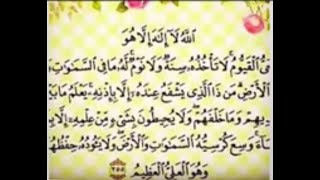 اللَّهُ لَا إِلَٰهَ إِلَّا هُوَ
ىُّ الْقَيُّومُ لَا تَأْخُذُهُ سِنَةٌ وَلَا نَوْمٌ لَهُ مَا فِي السَّمَاوَاتِ
الْأَرْضِ مَنْ ذَا الَّذِي يَشْفَعُ عِنْدَهُ إِلَّا بِإِذْنِهِ يَعْلَمُ مَا بَيْنَ
يهِمْ وَمَا خَلْفَهُمْ وَلَا يُحِيطُونَ بِشَيْءٍ مِنْ عِلْمِهِ إِلَّا بِ
اءَ وَسِعَ كُرْسِيُّهُ السَّمَاوَاتِ وَالْأَرْضَ وَلَا يَئُودُهُ حِفْظُهُمَا
وَهُوَ الْعَلِيُّ الْعَظِيمُ ٢٥٥